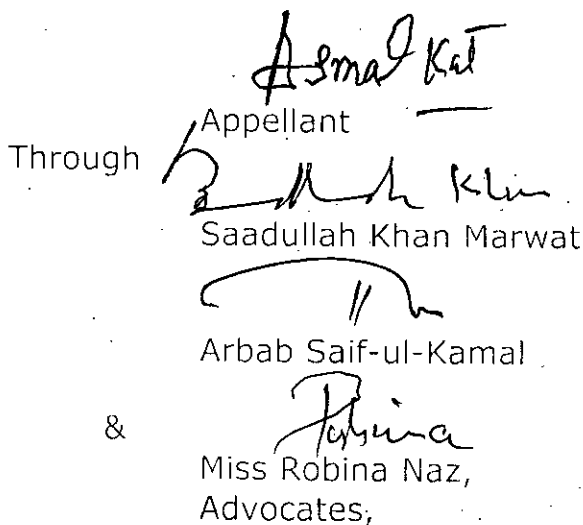 Appellant
Through
Khan
Saadullah Khan Marwat
Arbab Saif-ul-Kamal
&
Robina
Miss Robina Naz,
Advocates,